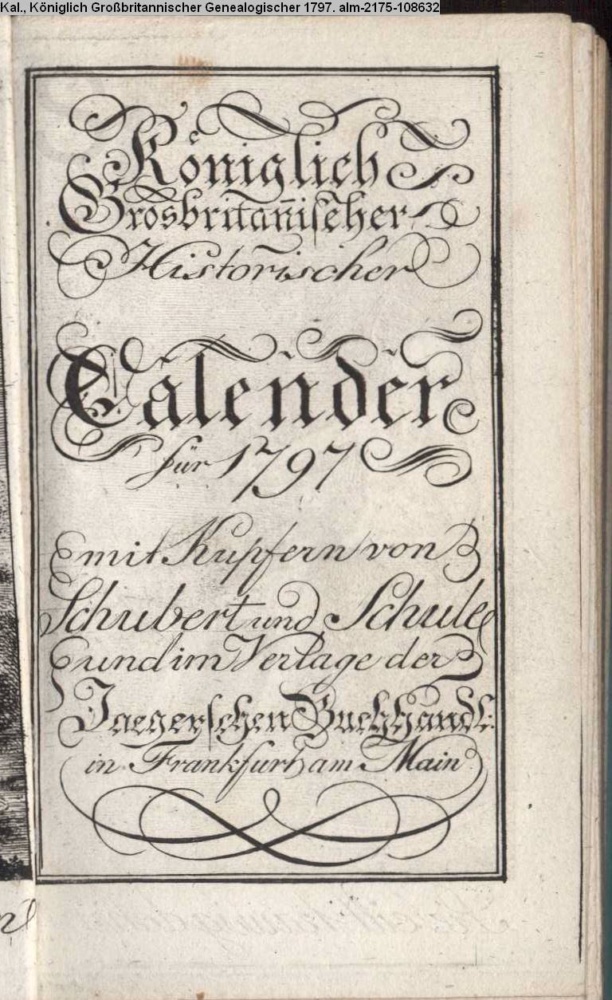 Kal., Königlich Großbritannischer Genealogischer 1797. alm-2175-108632
Königlich
Grosbritan̄ischer
Historischer
Calender
für 1797
mit Kupfern von
Schubert und Schule
und im Verlage der
Jaegerschen Buchhandl:
in Frankfurth am Main